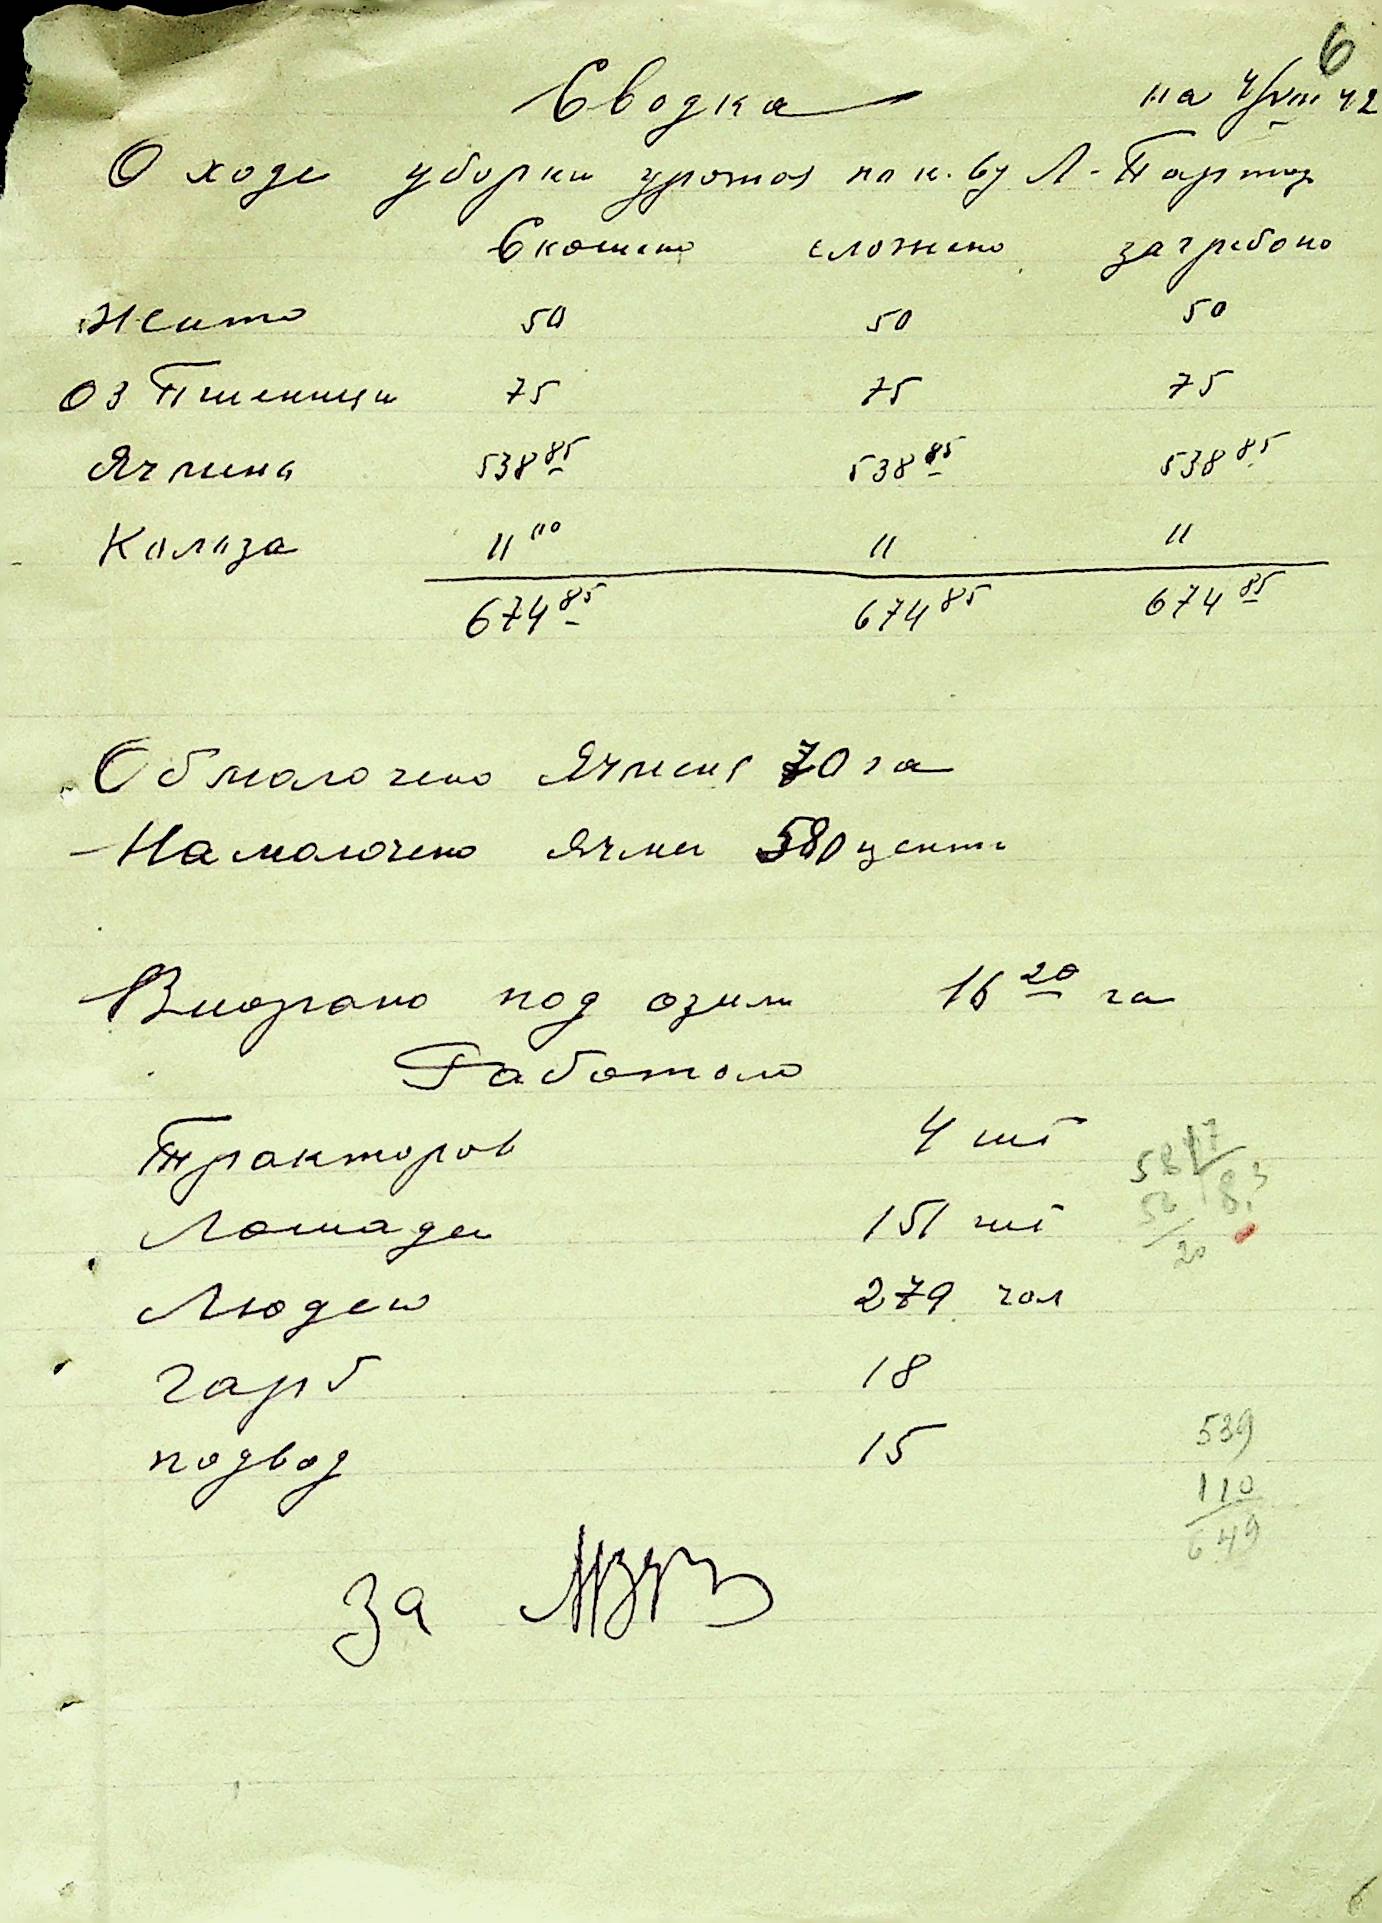 6
Сводка на 4/VIII 42
О ходе уборки урожая по к. ву Л-
Скошено сложено загребоно
Жито 50 50 50
Оз Пшеници 75 75 75
Ячмина 538 85 538 85 538 85
Колоза 11 00 11 11
674 85 674 85 674 85
Обмолочено Ячменя 70 га
Намолочено ячме 580 центн
Виорано под озими 16 20 га
Работало
Тракторов 4 шт
Лошадей 151 шт
Людей 279 чол
Гарб 18
подвод 15
58 7
56 8.3
20
539
110
649
За
6